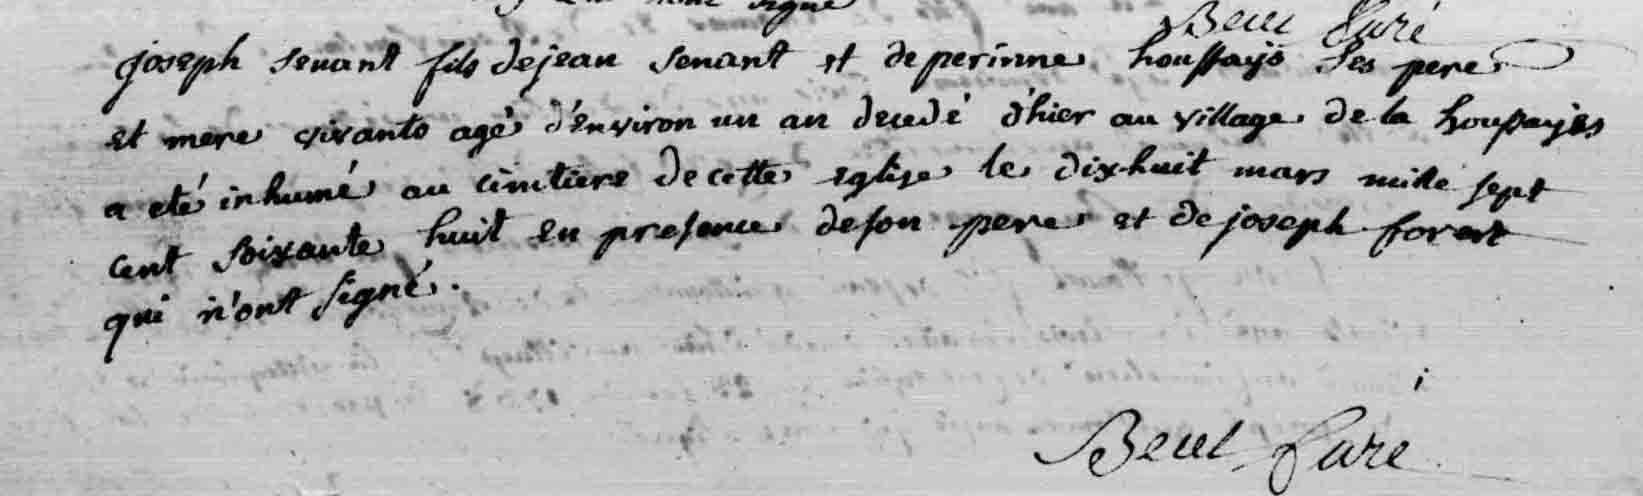 signé
Beul Curé
joseph senant fils de jean senant et de perinne houssays ses pere
et mere vivants agé d'environ un an decedé d'hier au village de la houssayes
a eté inhumé au cimtiere de cette eglise le dix-huit mars mille sept
cent soixante huit en presence de son pere et de joseph forest
qui n'ont signé.
Beul Curé